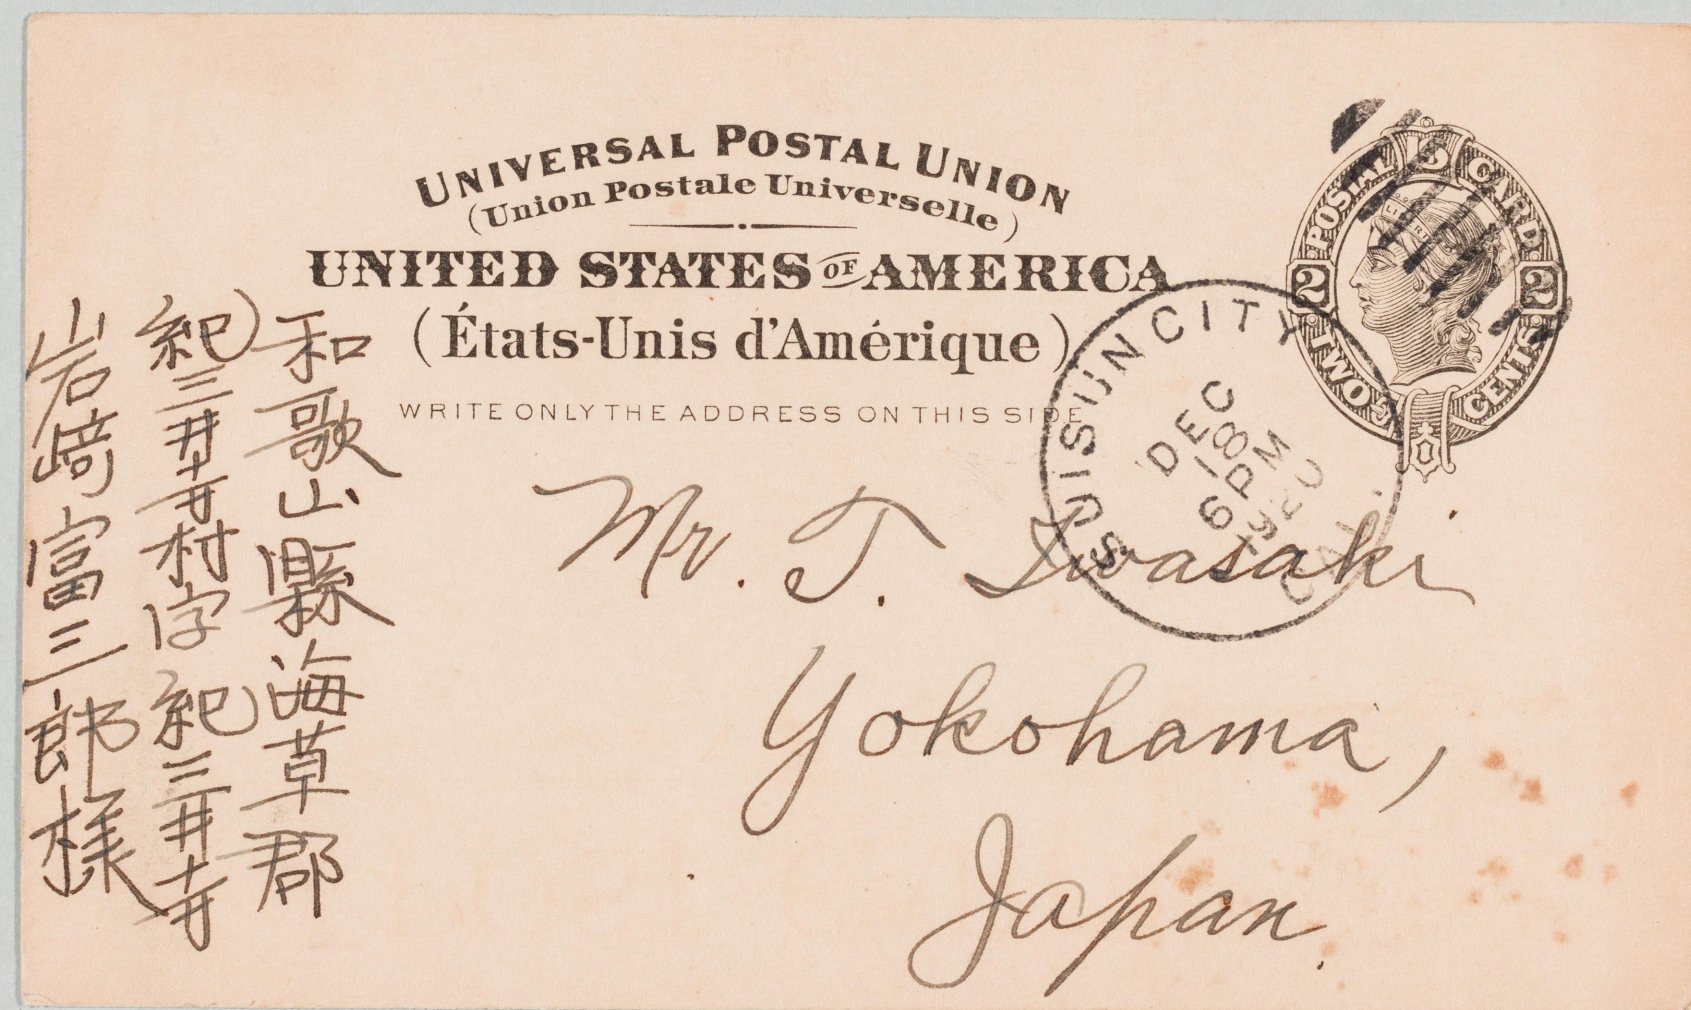 UNIVERSAL POSTAL UNION
(Union Postale Universelle)
UNITED STATES OF AMERICA
(États-Unis d'Amérique)
WRITE ONLY THE ADDRESS ON THIS SIDE
POSTAL CARD
2 2
TWO CENTS
SUISUN CITY CAL.
DEC
18
6 PM
1920
Mr. T. Iwasaki
Yokohama,
Japan.
和歌山縣海草郡
紀三井寺村字紀三井寺
岩﨑富三郎様